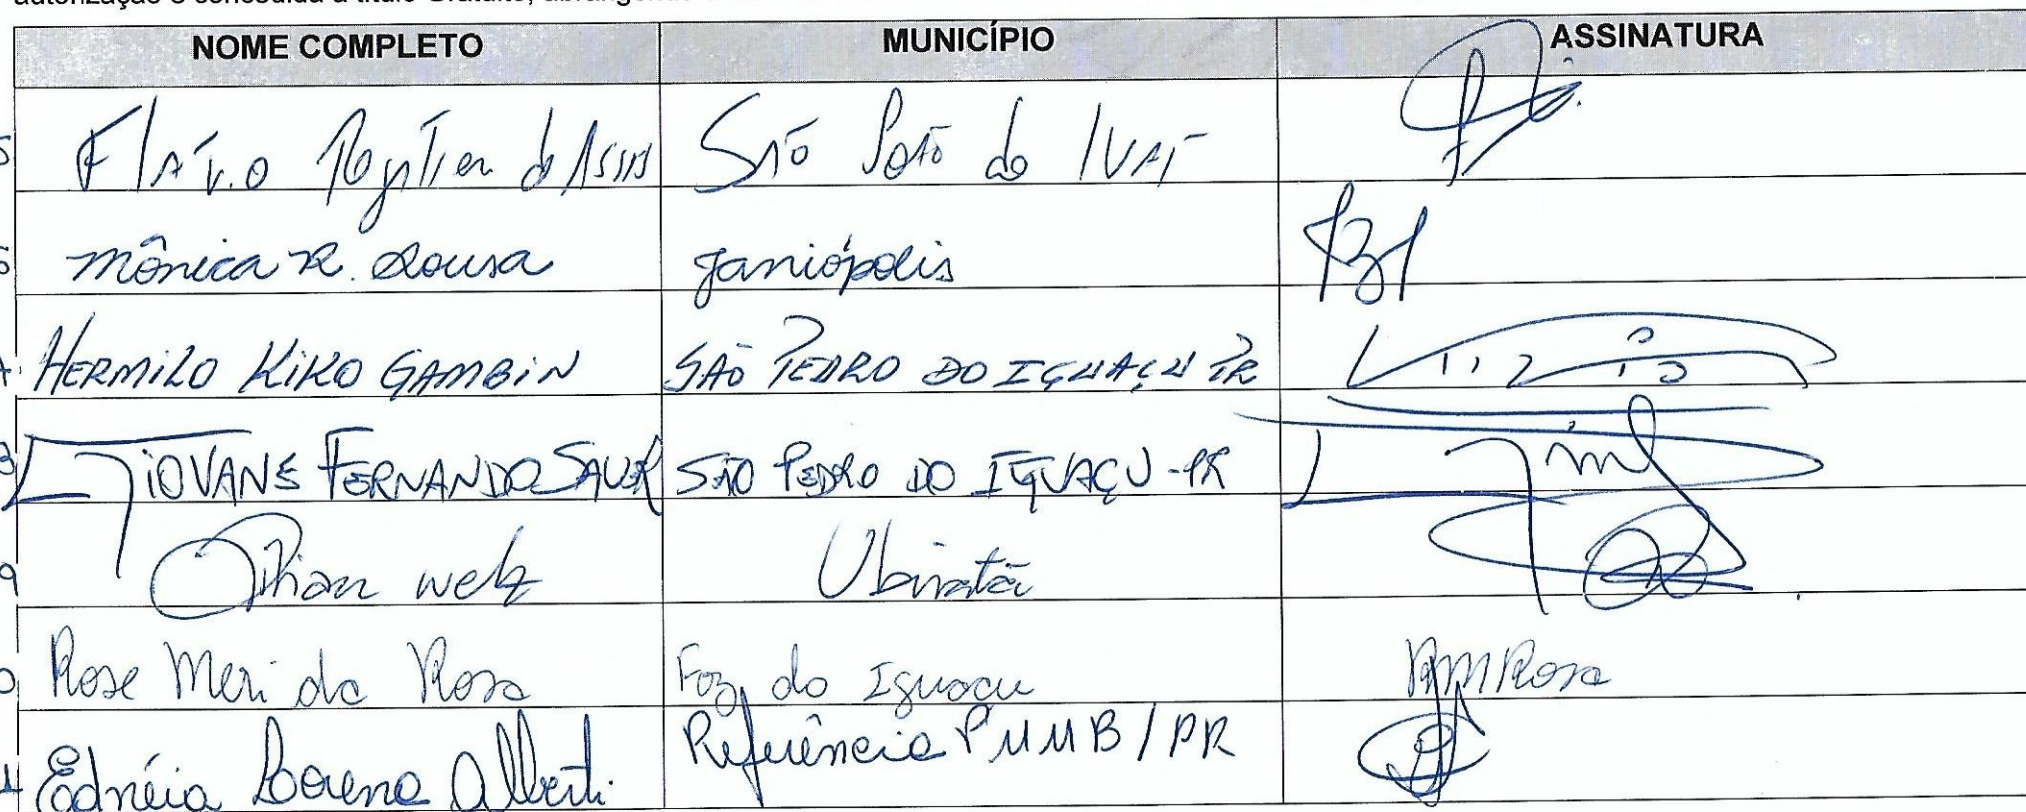 NOME COMPLETO MUNICÍPIO ASSINATURA
Flávio de Assis São João do Ivaí
Mônica R. Sousa Janiópolis
HERMILO KIKO GAMBIN SÃO PEDRO DO IGUAÇU PR
GIOVANE FERNANDO SAUER SÃO PEDRO DO IGUAÇU-PR
Welz Ubiratã
Rose Meri da Rosa Foz do Iguaçu RMRosa
Ednéia Alberti Referência PMMB/PR